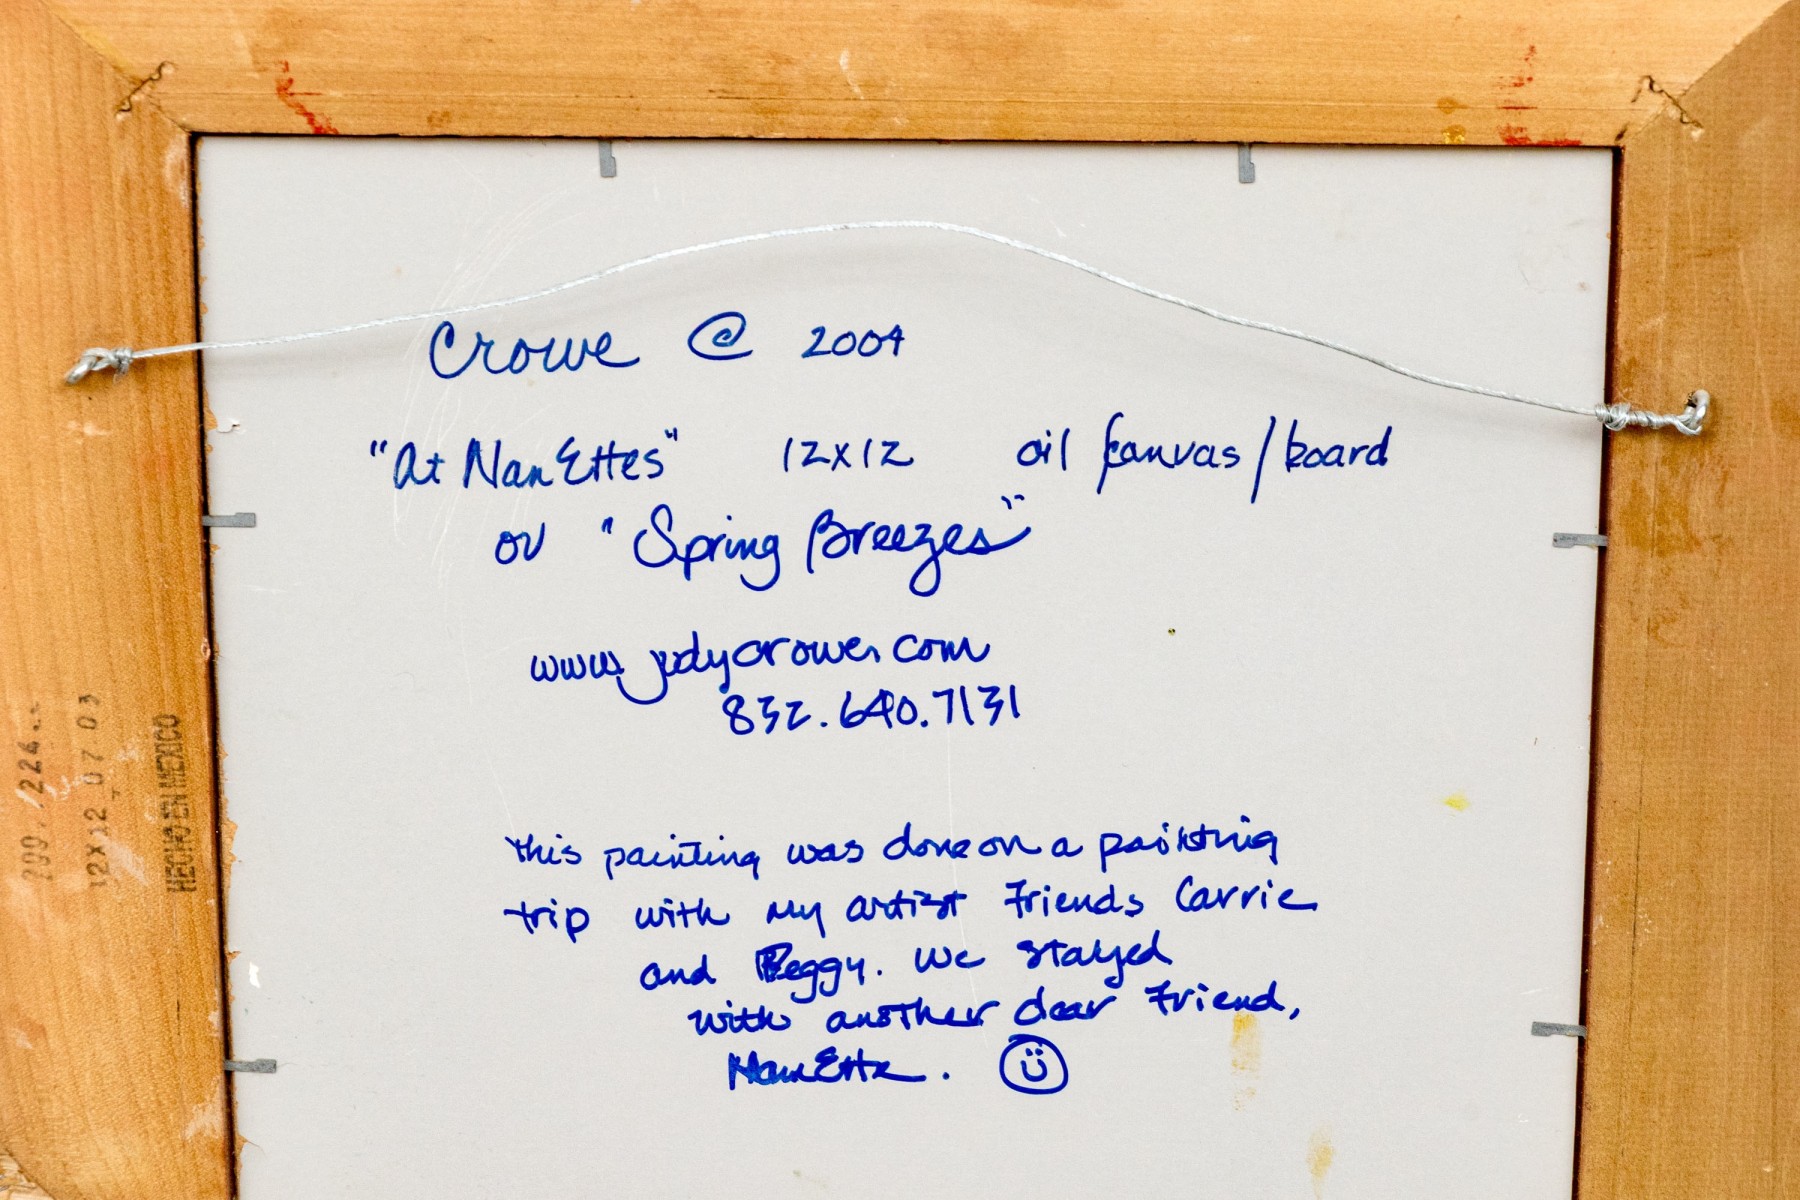 Crowe © 2004
"At NanEttes" 12x12 oil canvas/board
or "Spring Breezes"
www.judycrowe.com
832.640.7131
this painting was done on a painting
trip with my artist friends Carrie
and Peggy. We stayed
with another dear friend,
NanEtte.
12X12 07 03
HECHO EN MEXICO